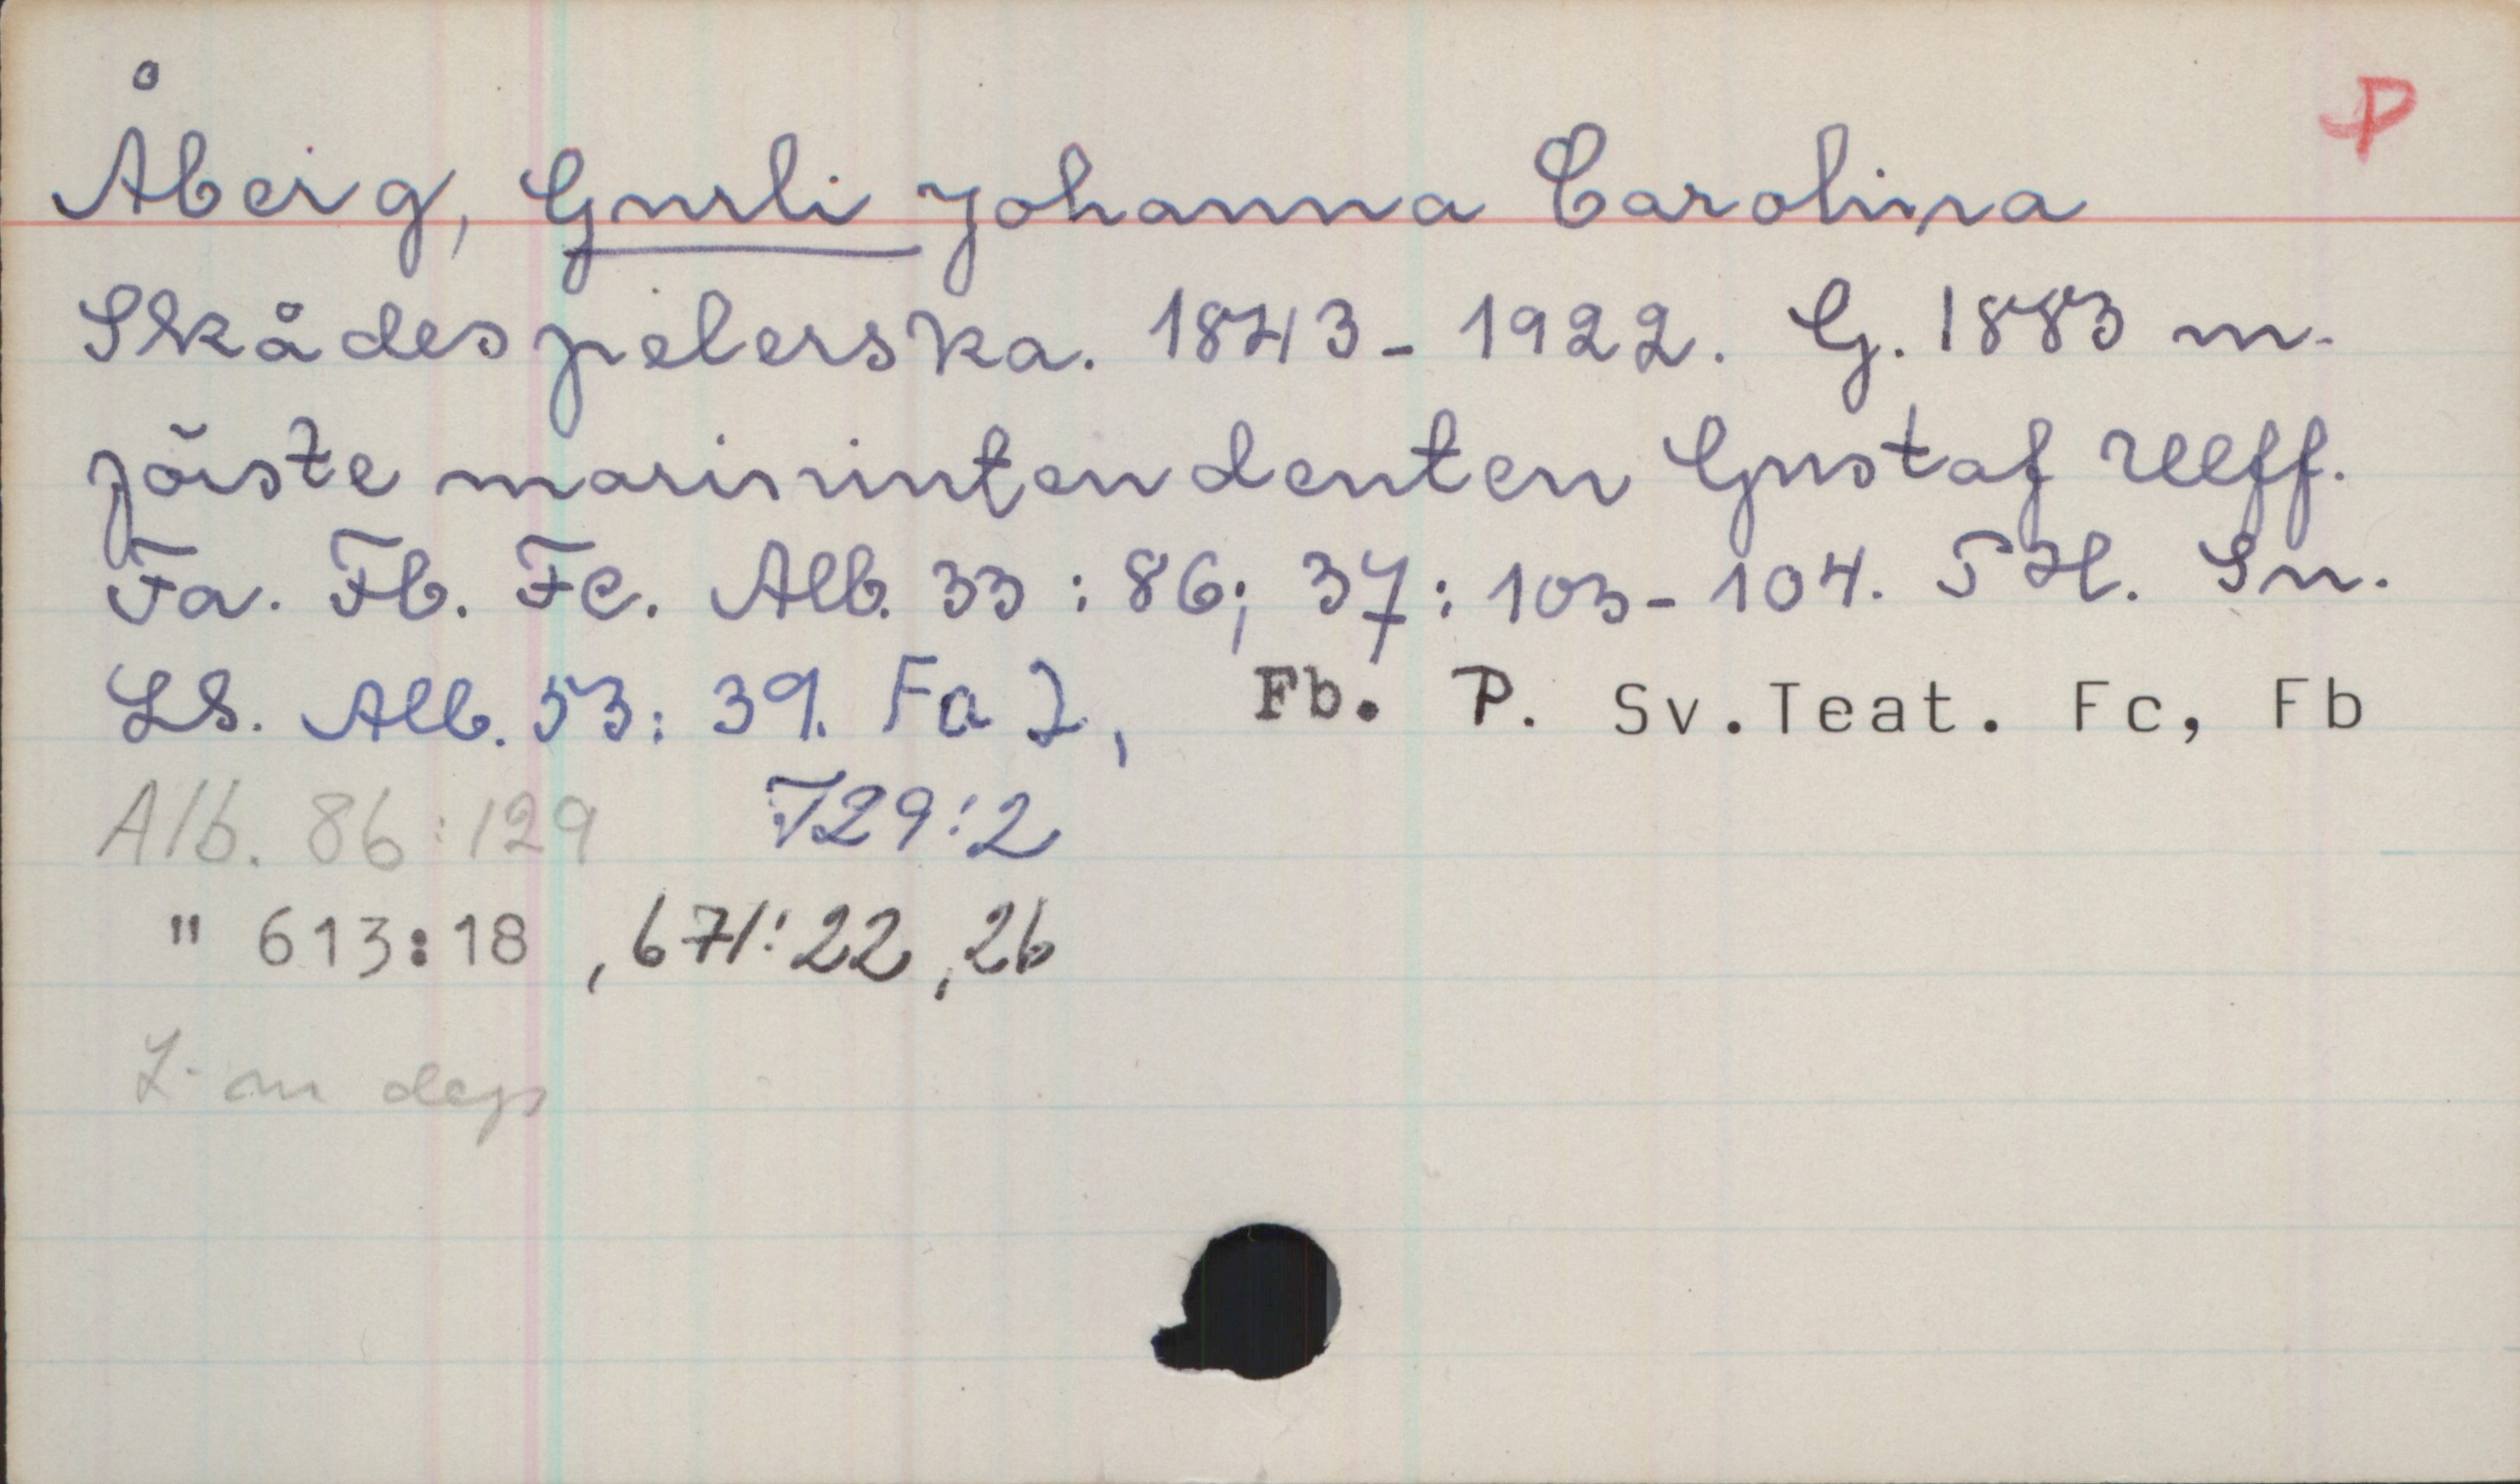 P
Åberg, Gurli Johanna Carolina
Skådespelerska. 1843-1922. G. 1883 m.
förste marinintendenten Gustaf Ulff.
Fa. Fb. Fc. Alb. 33:86; 37:103-104. TH. Sn.
LS. Alb. 53:39. Fa 2, Fb. P. Sv.Teat. Fc, Fb
Alb. 86:129 T29:2
" 613:18, 671:22, 26